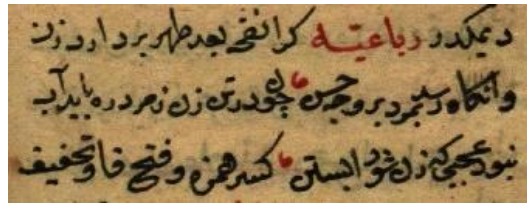 دیمکدر رباعیّه کر انفحه بعد طهر بردارد زن
وانکاه رسد بمرد بر وجه حسن چون در تن زن زمرد ره یابد آب
نبود عجبی که زن شود ابستن کسر همزه و فتح فا و تخفیف